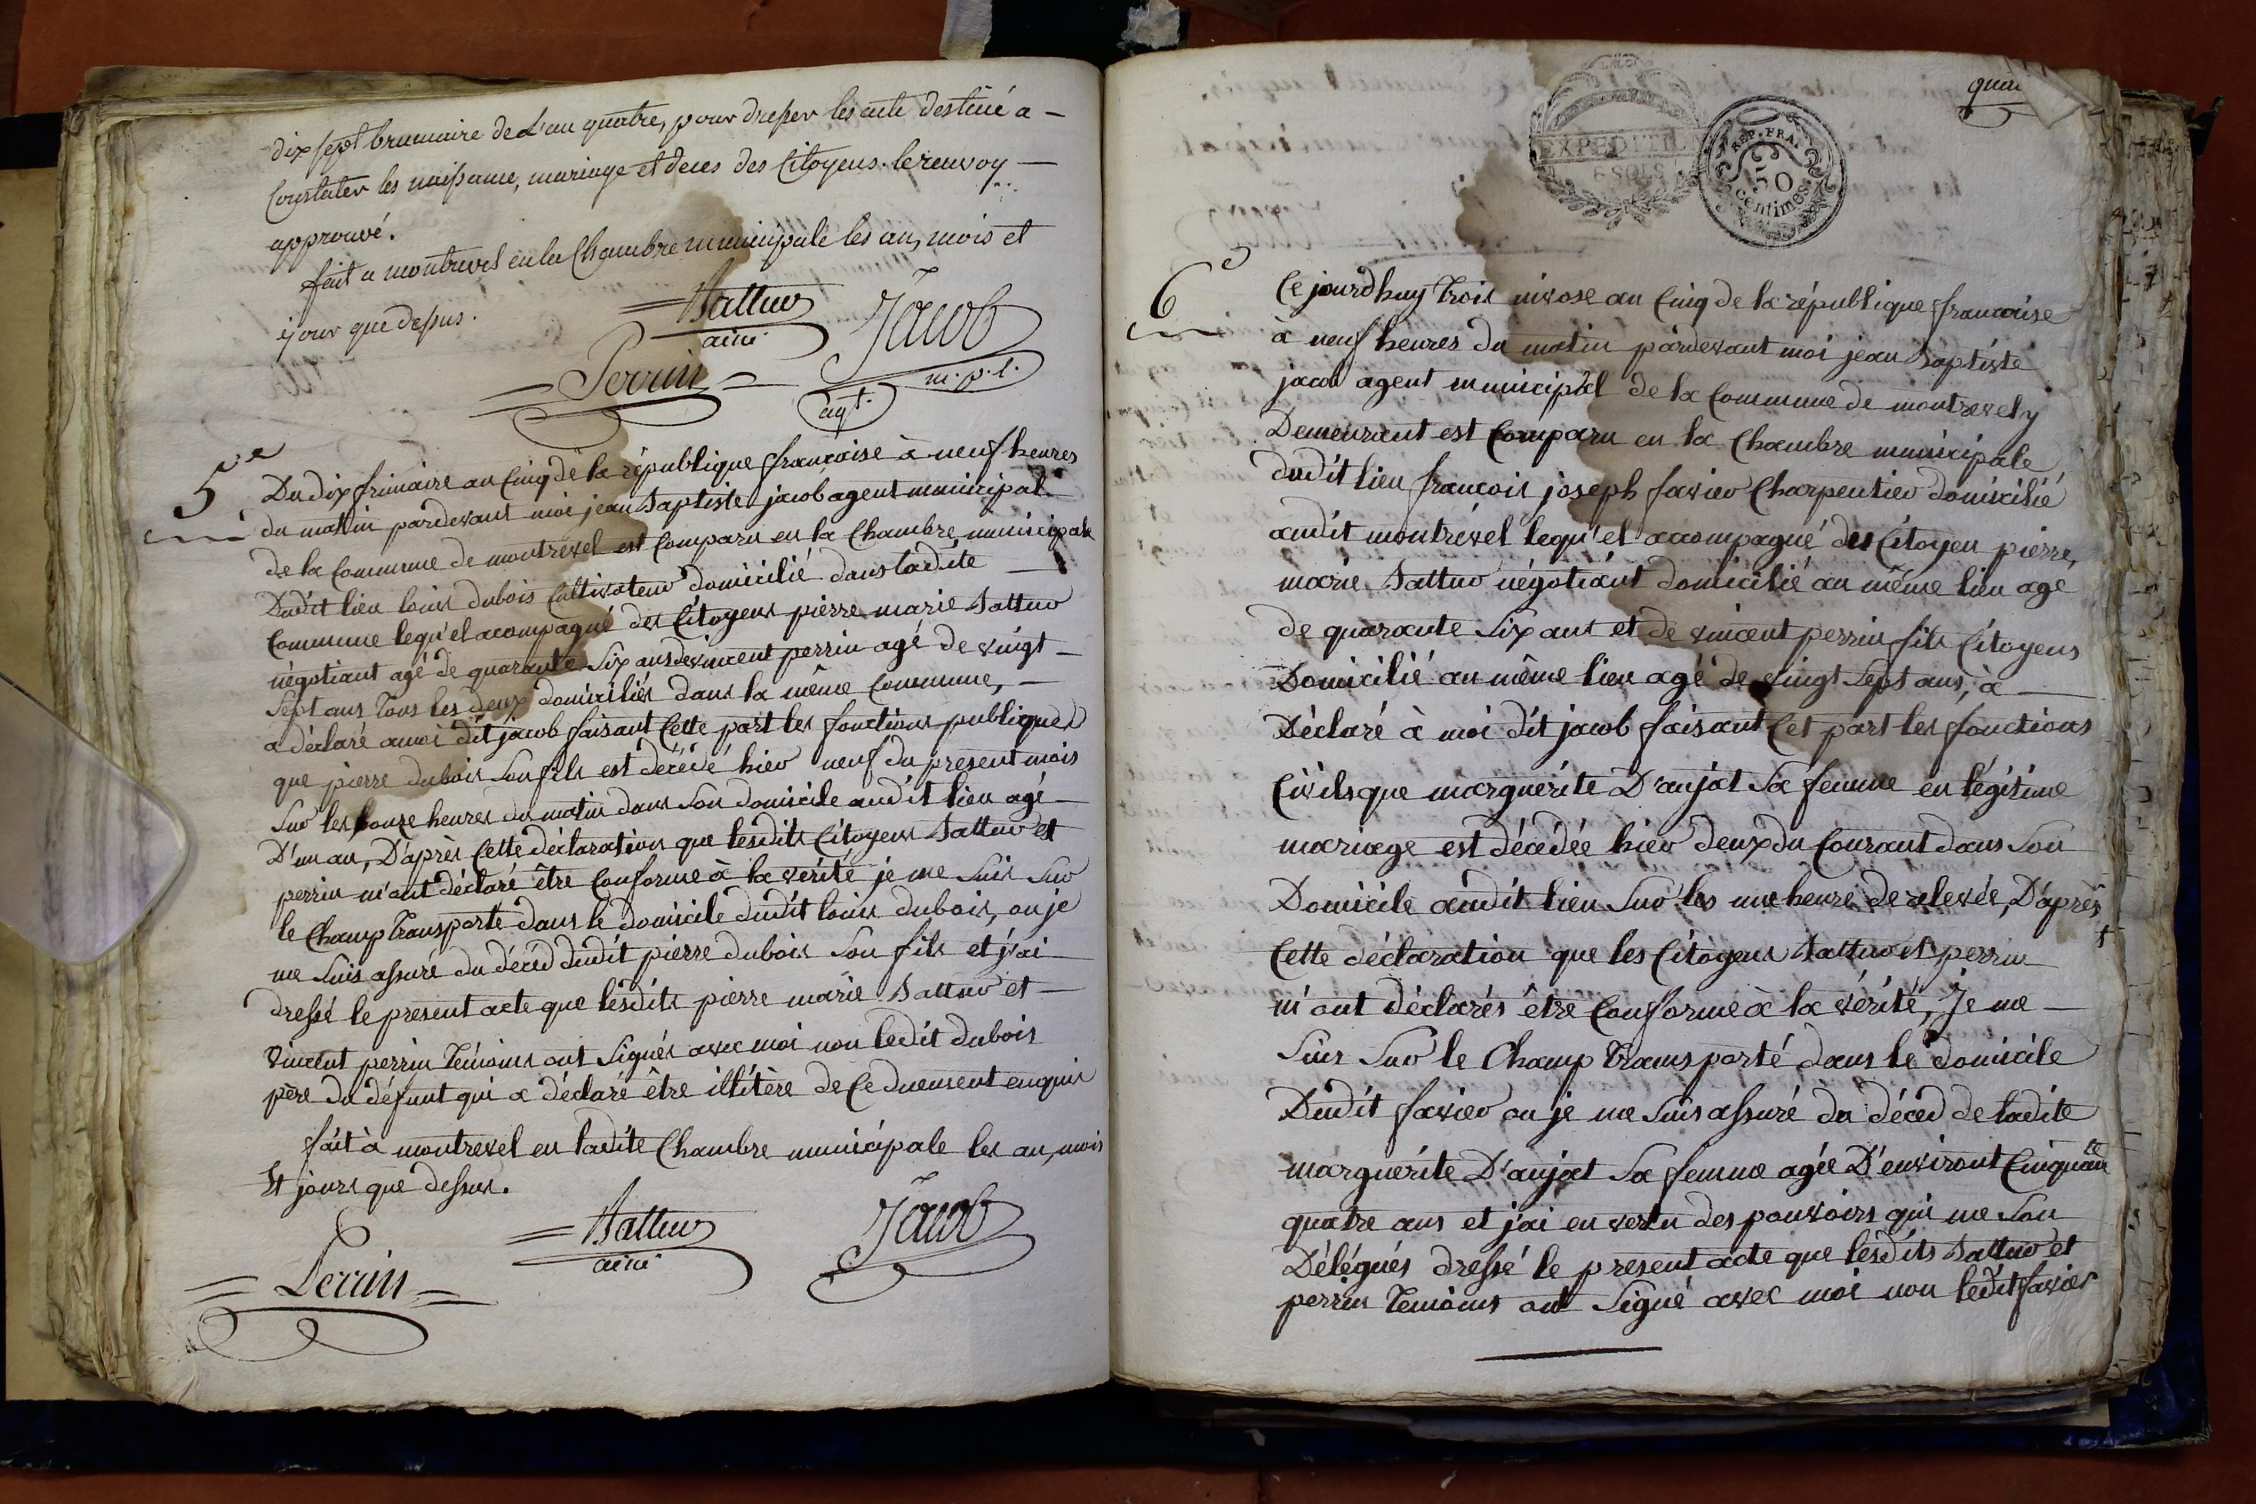 dix sept brumaire de L'an quatre, pour dresser les acte destiné a -
Constater les naissance, mariage et deces des Citoyens. le renvoy -
approuvé.
fait a montrevel en la Chambre municipale les an, mois et
jour que dessus.
Battur
ainé
Jacob
m.p.l.
agt.
Perrin
5e
Du dix frimaire an Cinq de la république francaise à neuf heures
du matin pardevant moi jean Baptiste jacob agent municipal
de la Commune de montrevel est Comparu en la Chambre municipale
Dudit lieu louis dubois Cultivateur domicilié dans ladite
Commune lequ'el acompagné des Citoyens pierre marie Battur
négotiant agé de quarante Six ans de vincent perrin agé de vingt -
Sept ans Tous les deux domiciliés dans la même Commune, -
a déclaré a moi dit jacob faisant Cette part les fonctions publiques
que pierre dubois Son fils est décédé hier neuf du present mois
Sur les honze heures du matin dans Son domicile audit lieu agé -
D'un an, D'après Cette déclaration que lesdits Citoyens Battur et
perrin m'ont déclaré être Conforme à la vérité je me Suis Sur
le Champ Transporté dans le domicile dudit louis dubois, ou je
me Suis assuré du déced dudit pierre dubois Son fils et j'ai
dressé le present acte que lesdits pierre marie Battur et -
vincent perrin Témoins ont Signés avec moi non ledit dubois
père du défunt qui a déclaré être illitère de Ce duement enquis
fait à montrevel en ladite Chambre municipale les an, mois
Et jours que dessus.
Battur
ainé
Jacob
Perrin
EXPEDITI
SOLS
REP. FRA.
50
Centimes
6e
Ce jourd huy Trois nivose an Cinq de la république francaise
à neuf heures du matin pardevant moi jean Baptiste
jacob agent municipal de la Commune de montrevel y
Demeurant est Comparu en la Chambre municipale
dudit lieu francois joseph favier Charpentier domicilié
audit montrével lequ'el acompagné des Citoyen pierre,
marie Battur négotiant domicilié au même lieu age
de quarante Six ans et de vincent perrin fils Citoyens
Domicilié au même lieu agé de vingt Sept ans, à -
Déclaré à moi dit jacob faisant Cet part les fonctions
Civils que marguérite D'anjat Sa femme en légitime
mariage est décédée hier deux du Courant dans Son
Domicile audit lieu Sur les une heure de relevée, D'après
Cette déclaration que les Citoyens Battur et perrin
m'ont déclarés être Conforme à la vérité, Je me -
Suis Sur le Champ Transporté dans le domicile
Dudit favier ou je me Suis assuré du déced de ladite
marguérite D'anjat Sa femme agée D'environt Cinquante
quatre ans et j'ai en vertu des pouvoirs qui me Son
Délégués dressé le present acte que lésdits Battur et
perrin Temoins ont Signé avec moi non ledit favier